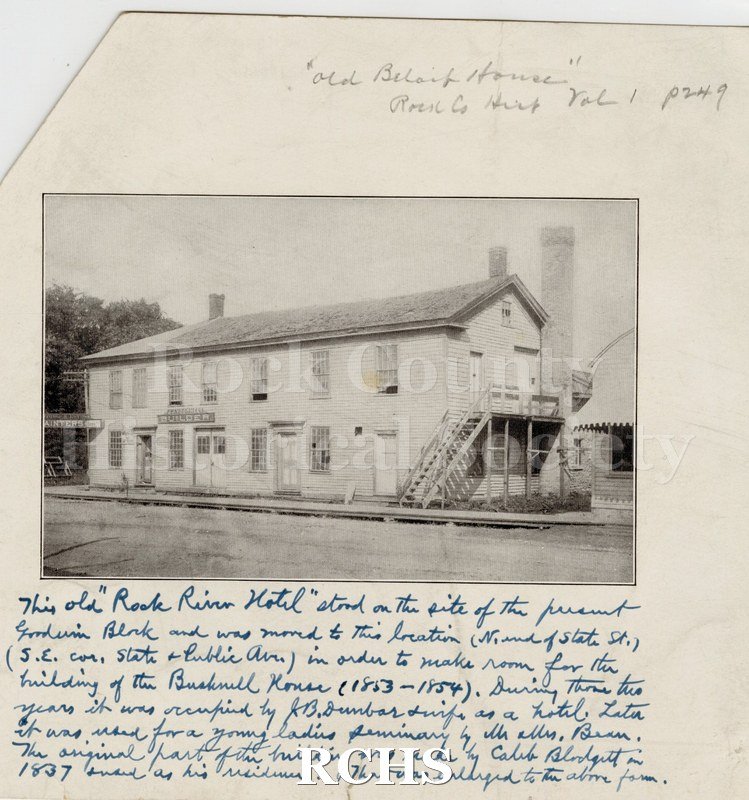 "Old Beloit House"
Rock Co Hist Vol 1 p249
BUILDER
AINTERS
Rock County
Historical Society
This old "Rock River Hotel" stood on the site of the present
Goodwin Block and was moved to this location (N. end of State St.)
(S.E. cor. State & Public Ave.) in order to make room for the
building of the Bushnell House (1853-1854). During those two
years it was occupied by J.B. Dunbar & wife as a hotel. Later
it was used for a young ladies seminary by Mr & Mrs. Bean.
The original part of the building by Caleb Blodgett in
1837 & used as his residence. enlarged to the above form.
RCHS